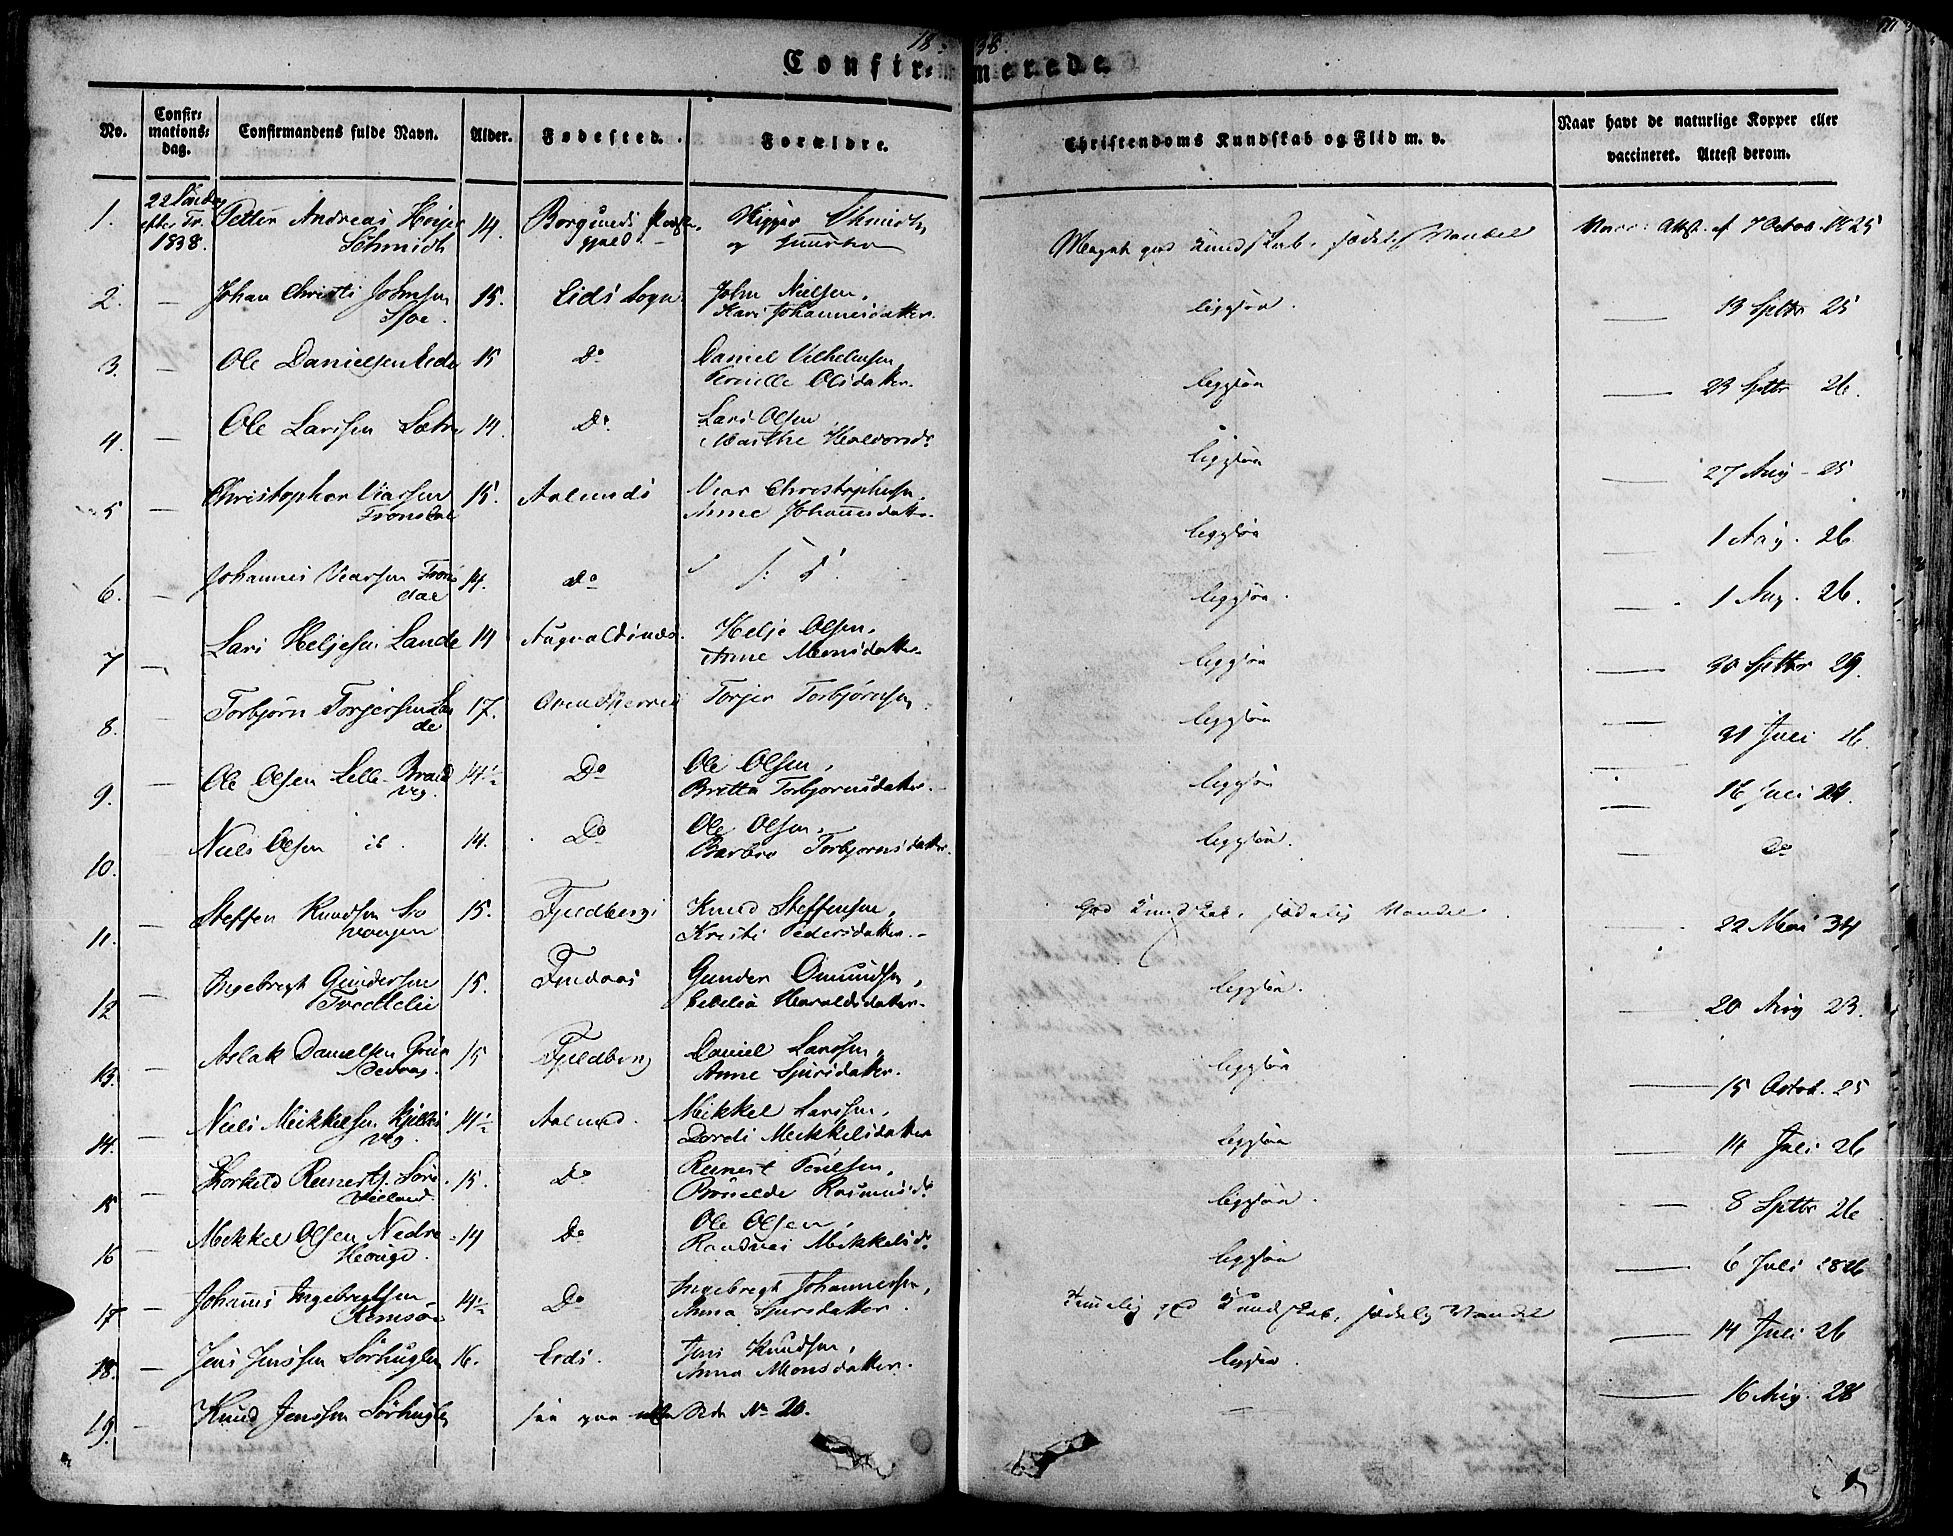 18 38.
Confirmerede
No.
Confirmations-dag.
Confirmandens fulde Navn.
Alder.
Fødested.
Forældre.
Christendoms Kundskab og Flid m. v.
Naar havt de naturlige Kopper eller vaccineret. Attest derom.
1. 22 Søndag efter Tr. 1838. Petter Andreas Høyer Schmidt 14. Borgunds Skipper Schmidt og Meget god Kundskab, sædelig Vandel Attest af 7 Octob. 1825
2. — Johan Christi Johnsen 15. Eids Sogn John Nielsen, Kari Johannesdatter. ligesaa. — 13 Sptbr 25
3. — Ole Danielsen Eide 15 Do Daniel Vilhelmsen, Pernille Olsdatter. ligesaa — 23 Sptbr 26.
4 — Ole Larssen Sætre 14. Do Lars Olsen Marthe Halvorsdr ligesaa 27 Aug 25
5 — Christopher Viarsen Fronsdal 15. Aalunds Viar Christophersen, Anne Johannesdatter. ligesaa — 1 Aug. 26
6. — Johannes Viarsen Fronsdal 14. Do ligesaa. — 1 Aug. 26.
7 — Lars Heljesen Lande 14 Augvaldsnæs. Helje Olsen, Anne Monsdatter ligesaa — 30 Sptbr 29.
8. — Torbjørn Torjersen Lande 17. Torjer Torbjørnsen ligesaa — 31 Juli 26.
9. — Ole Olsen Lille-Bradveg 14½ Do Ole Olsen, Britta Torbjørnsdatter. ligesaa — 16 Juli 24.
10. Niels Olsen ib. 14. Do Ole Olsen, Barbro Torbjørnsdatter. ligesaa. — Do
11. — Steffen Knudsen 15. Fjeldbergs Knud Steffensen, Kristi Pedersdatter. — God Kundskab, sædelig Vandel. — 22 Mai 34
12 — Ingebregt Gundersen Tvedtelie 15. Findaas Gunder Omundsen, Cecilia Haraldsdatter. ligesaa. 20 Aug 23.
13. — Aslak Danielsen 15 Fjeldberg Daniel Larssen, Anne Sjursdatter. ligesaa — 15 Octob. 25
14. — Niels Mikkelsen 14½ Aalund. Mikkel Larssen, Dordi Mikkelsdatter ligesaa — 14 Juli 26
15 — Thorkild Reinerts. 15. Do Reinert Poulsen, Brønelde Rasmusdr ligesaa. — 8 Sptbr 26
16 — Mikkel Olsen Nedre Heovige 14 Do Ole Olsen, Randvei Mikkelsdr ligesaa — 6 Juli 1826
17 — Johannes Ingebregtsen Remsøe 14½ Do Ingebregt Johannessen, Anna Sjursdatter. Temelig god Kundskab, sædelig Vandel — 14 Juli 26
18. — Jens Jenssen Sørhuglen 16. Eids. Jens Knudsen, Anna Monsdatter. ligesaa. — 16 Aug. 28
19. — Knud Jenssen Sørhuglen paa Side No 20.